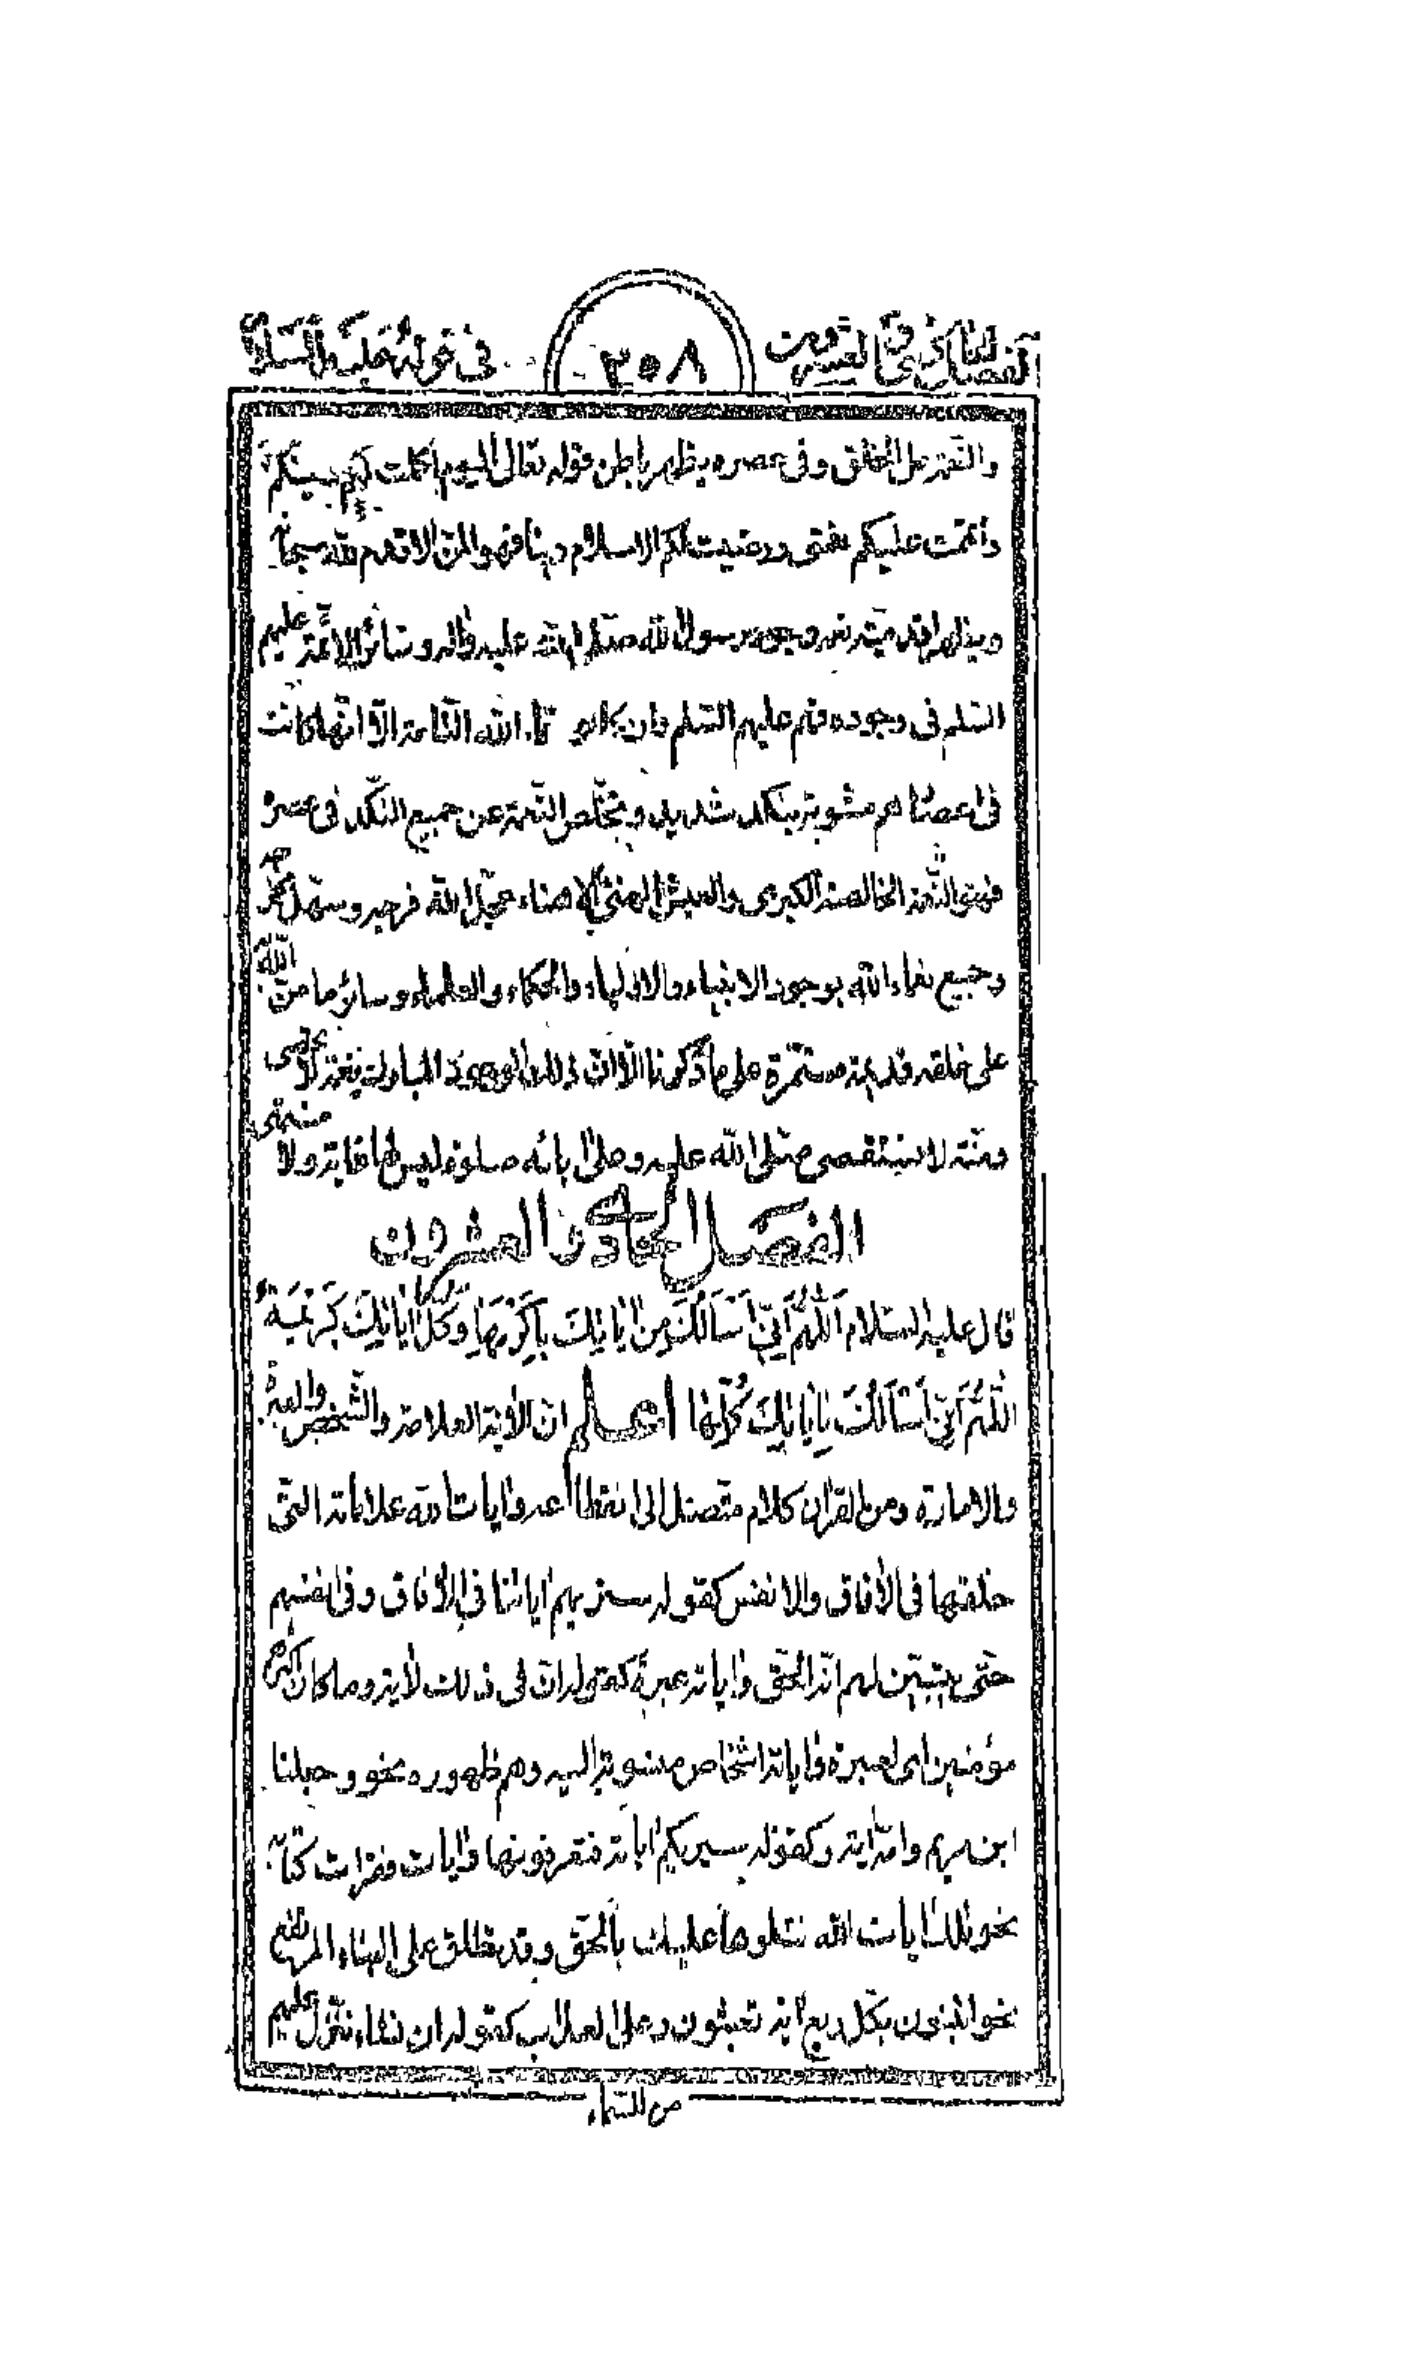 الفصل الحادي والعشرون ٣٥٨ في قوله عليه السلام
والنعمة على الخلق وفي عصره يظهر باطن قوله تعالى اليوم اكملت لكم دينكم
واتممت عليكم نعمتي ورضيت لكم الاسلام دينا فهو المن الاقدم لله سبحانه
ويظهر قدميته وجود رسول الله صلى الله عليه واله وسائر الائمة عليهم
السلم في وجوده فهم عليهم السلم وان كانوا الله التامة الا انها كانت
في اعصارهم مشوبة بنكد شديد ويتخلص النعمة عن جميع النكد في عصره
فهو النعمة الخالصة الكبرى والعيش الهنيء عجل الله فرجه وسهل مخرجه
وجميع نعماء الله بوجود الانبياء والاولياء والحكماء والعلماء وسائر ما من الله
على خلقه قديمة مستمرة على ما ذكرنا الا ان ذلك الوجود المبارك نعمة لا تحصى
ومنة لا تستقصى صلى الله عليه وعلى ابائه صلوة ليس لها غاية ولا منتهى
الفصل الحادي والعشرون
قال عليه السلام اَللّٰهُمَّ اِنّي اَسْاَلُكَ مِنْ اٰيٰاتِكَ بِاَكْرَمِهٰا وَكُلُّ اٰيٰاتِكَ كَريمَةٌ
اَللّٰهُمَّ اِنّي اَسْاَلُكَ بِاٰيٰاتِكَ كُلِّهٰا اعلم ان الاٰية العلامة والشخص والعبرة
والامارة ومن القراٰن كلام متصل الى انقطاعه واٰيات الله علاماته التي
خلقها في الاٰفاق والانفس كقوله سنريهم اٰياتنا في الاٰفاق وفي انفسهم
حتى يتبين لهم انه الحق واٰياته عبره كقوله ان في ذلك لاٰية وما كان اكثرهم
مؤمنين اي لعبرة واٰياته اشخاص منسوبة اليه وهم ظهوره نحو وجعلنا
ابن مريم وامه اٰية وكقوله سيريكم اٰياته فتعرفونها واٰيات فقرات كتابه
نحو تلك اٰيات الله نتلوها عليك بالحق وقد يطلق على البناء المرتفع
نحو اتبنون بكل ريع اٰية تعبثون وعلى العذاب كقوله ان نشاء ننزل عليهم
من السماء